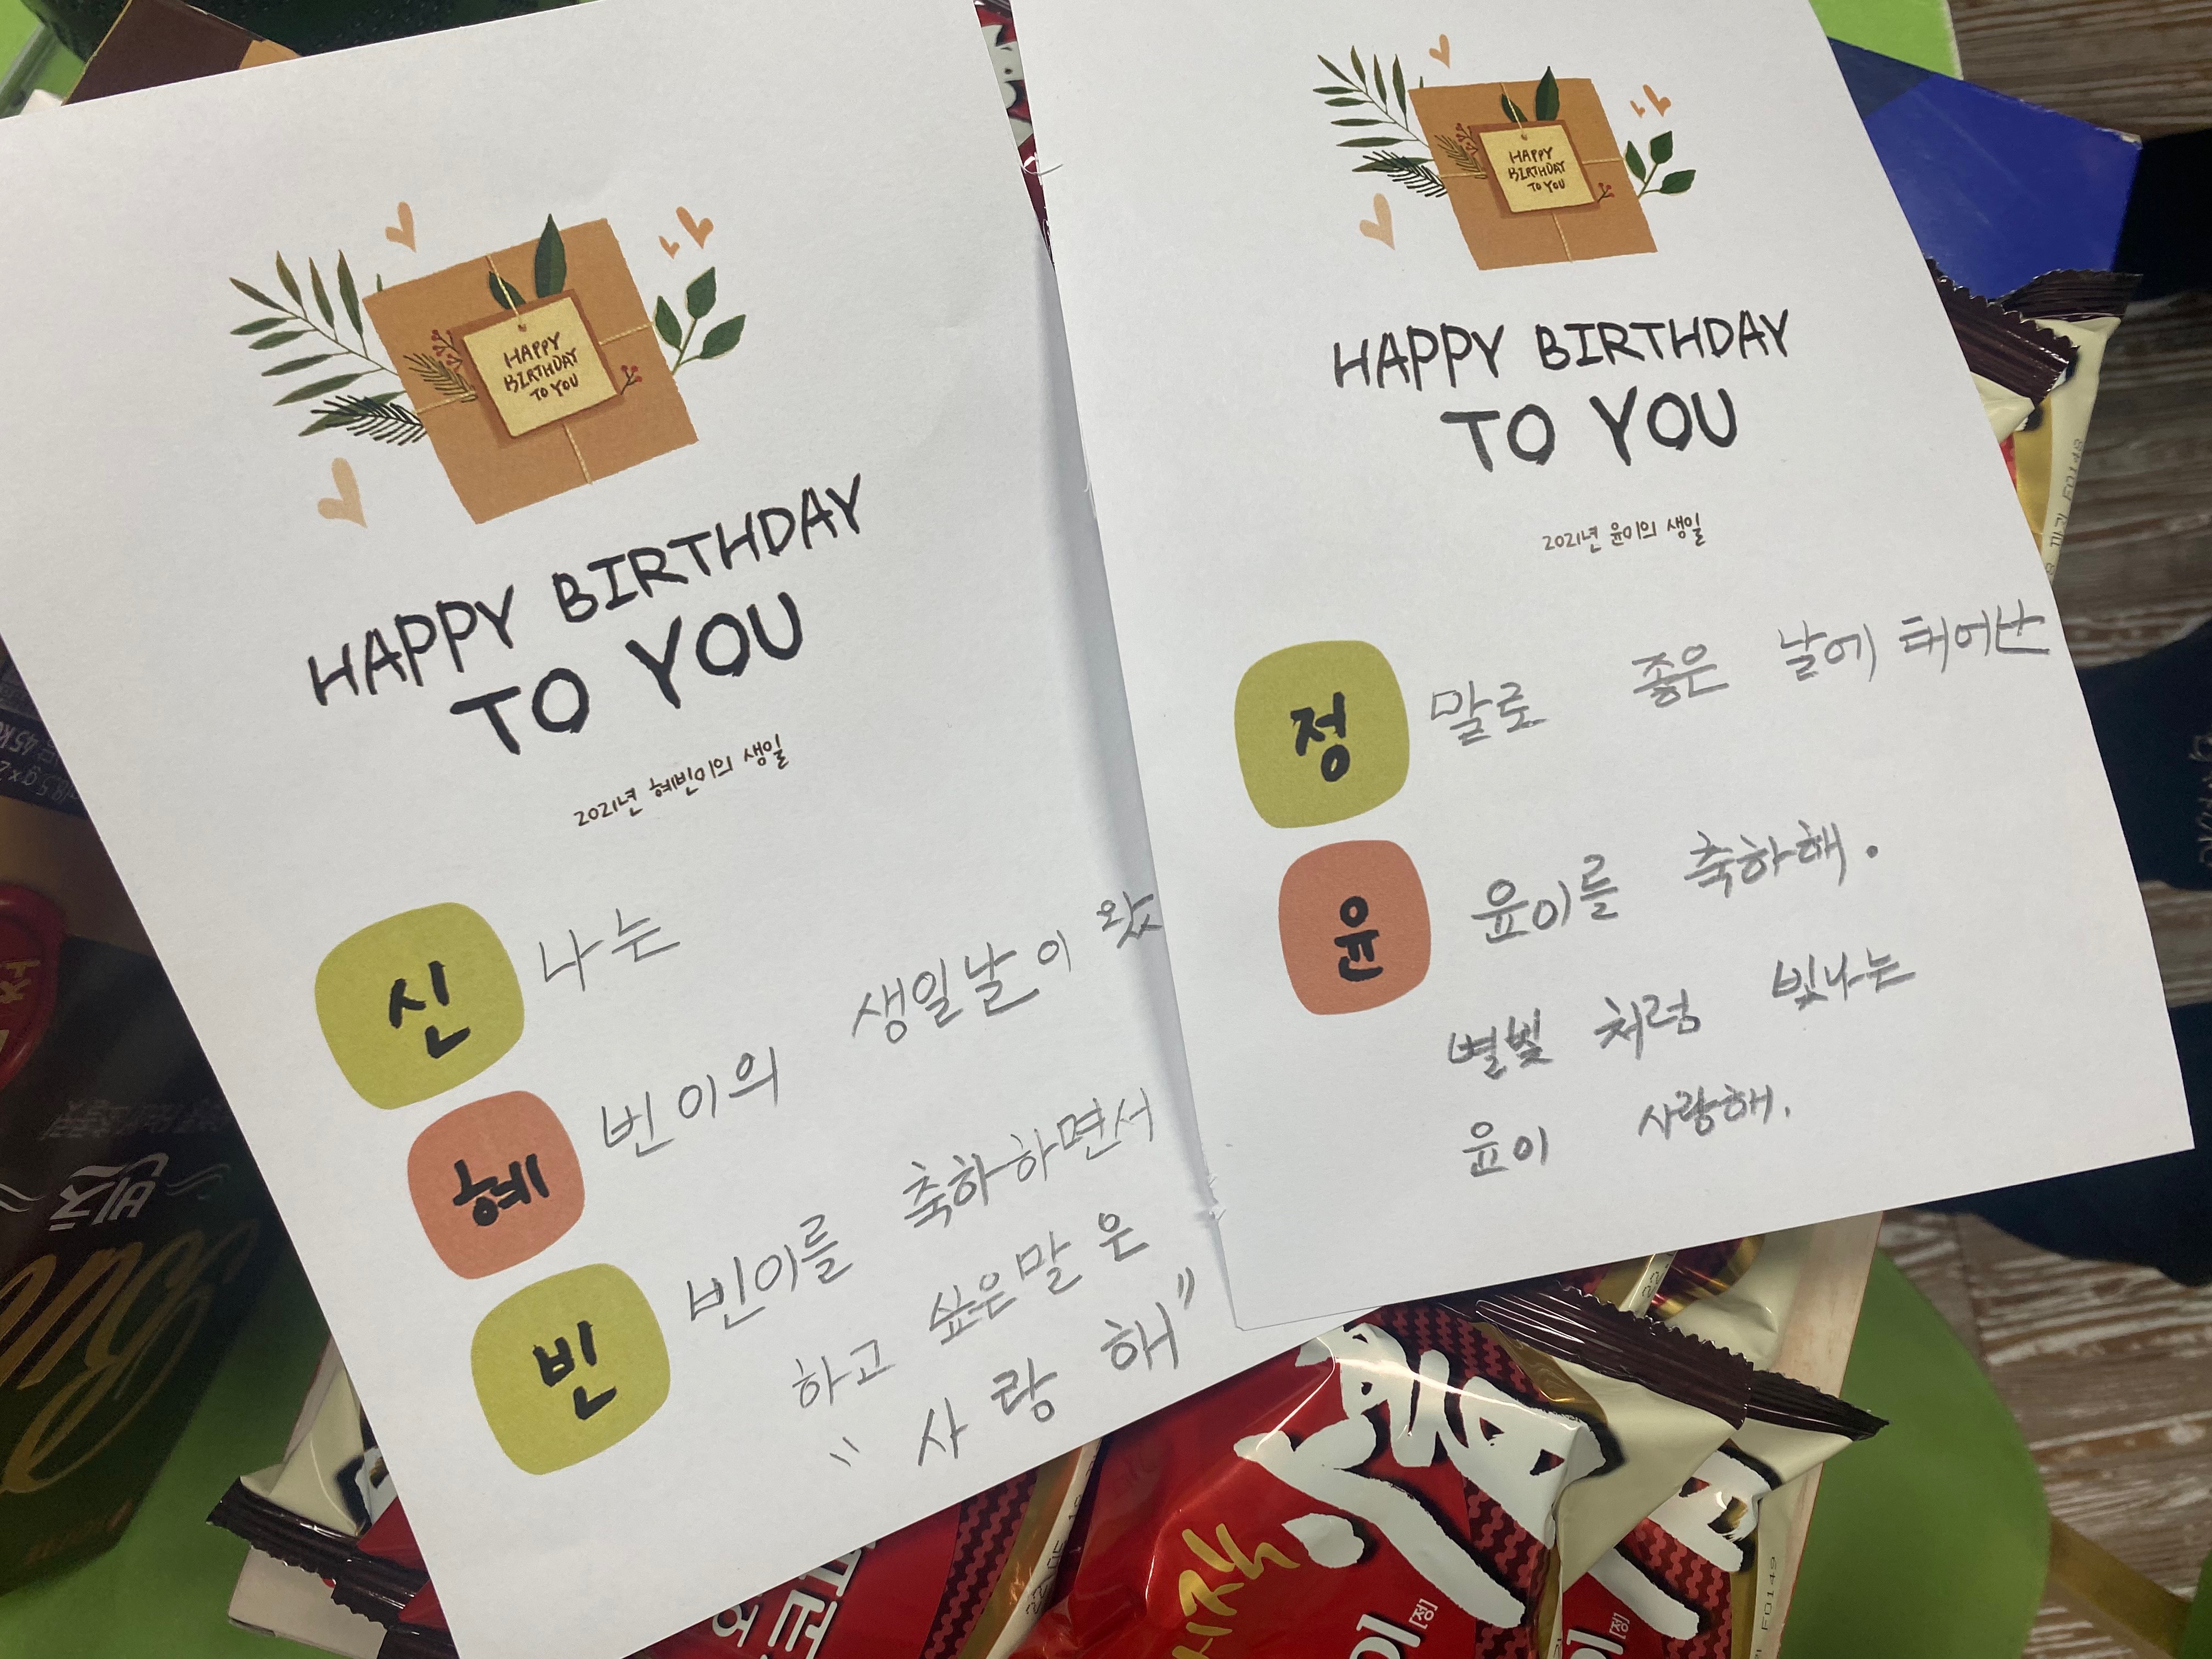 HAPPY
BIRTHDAY
TO YOU
HAPPY BIRTHDAY
TO YOU
2021년 혜빈이의 생일
신 나는
혜 빈이의 생일날이 왔
빈 빈이를 축하하면서
하고 싶은말은
"사랑해"
HAPPY
BIRTHDAY
TO YOU
HAPPY BIRTHDAY
TO YOU
2021년 윤이의 생일
정 말로 좋은 날에 태어난
윤 윤이를 축하해.
별빛 처럼 빛나는
윤이 사랑해.
빈츠
[정]
[정]
F0149